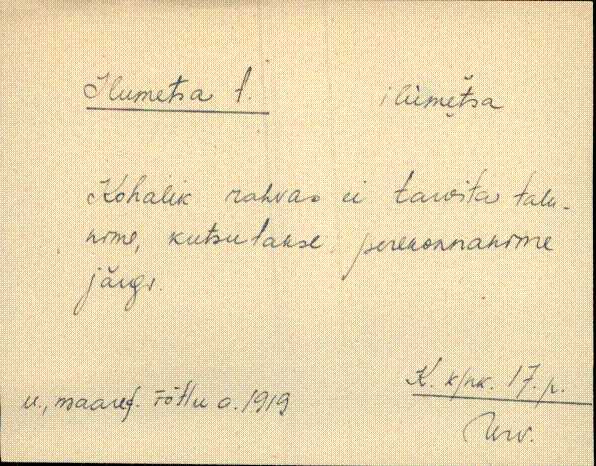 Ilumetsa t. ilùmẹtsa
Kohalik rahvas ei tarvita talu-
nime, kutsutakse perekonnanime
järgi.
K. k/nk. 17. p.
u., maaref. Tõtlu a. 1919
Urv.